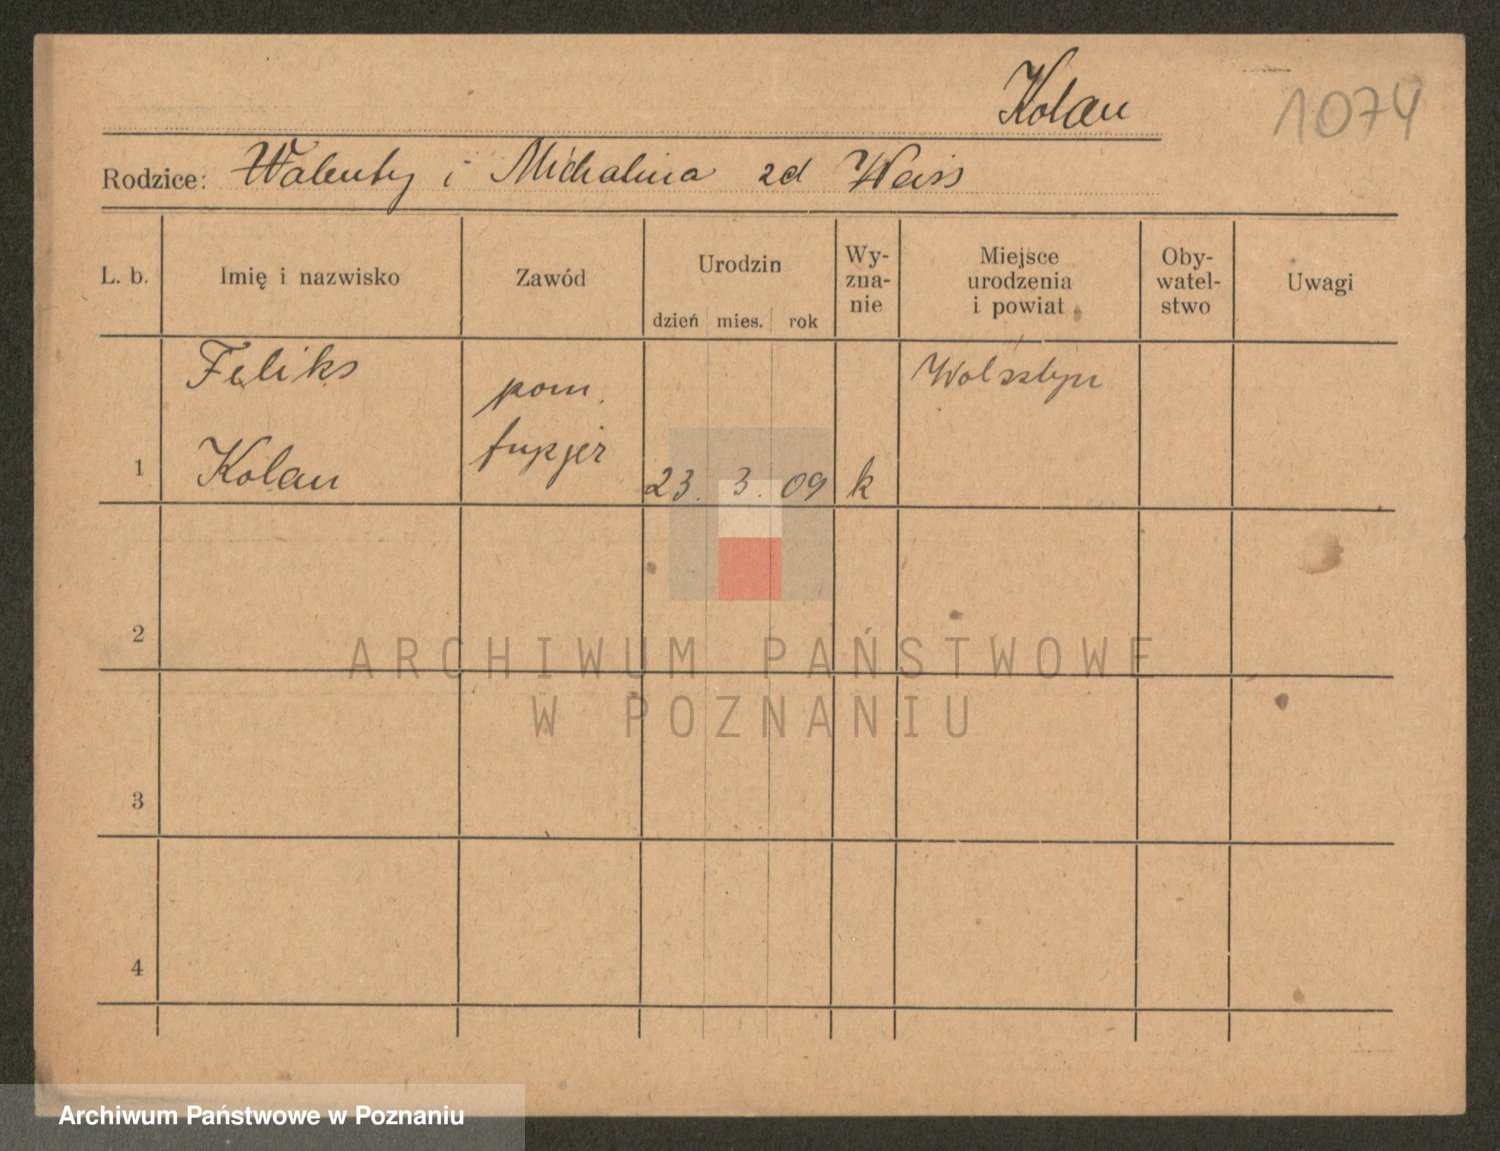 Kolan
1074
Rodzice: Walenty i Michalina zd Weiss
L. b. Imię i nazwisko Zawód Urodzin Wy-zna-nie Miejsce urodzenia i powiat Oby-watel-stwo Uwagi
dzień mies. rok
Feliks Wolsztyn
pom.
fryzjer
1 Kolan 23. 3. 09 k
2
ARCHIWUM PAŃSTWOWE
W POZNANIU
3
4
Archiwum Państwowe w Poznaniu